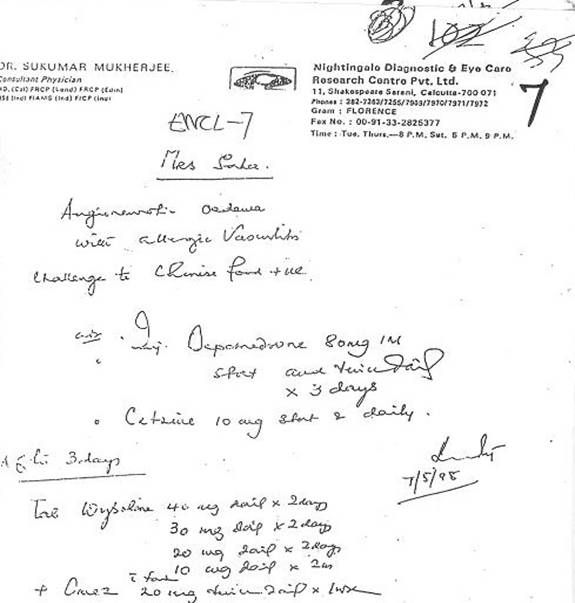 102
DR. SUKUMAR MUKHERJEE.
Consultant Physician
M.D. (Cal) FRCP (Lond) FRCP (Edin)
FIAMS (Ind) FICP (Ind)
Nightingale Diagnostic & Eye Care
Research Centre Pvt. Ltd.
11, Shakespeare Sarani, Calcutta-700 071
Phones : 282-7263/7255/7969/7970/7971/7972
Gram : FLORENCE
Fax No. : 00-91-33-2825377
Time : Tue, Thurs.—8 P.M. Sat. 5 P.M. 9 P.M.
7
ENCL-7
Mrs
Angioneurotic Oedema
with allergic Vasculitis
Challenge to Chinese food +ve
Inj. Depomedrone 80mg IM
stat and twice daily
x 3 days
Cetzine 10 mg stat & daily.
3 days
7/5/98
Tab Wysolone 40 mg daily x 2 days
30 mg daily x 2 days
20 mg daily x 2 days
10 mg daily x
+ 20 mg twice daily x